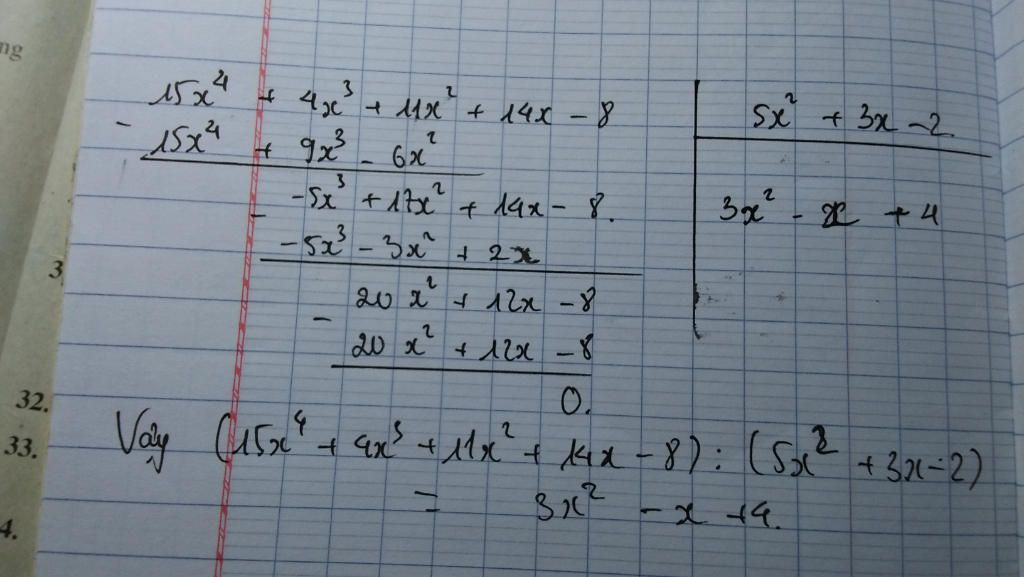 ng
15x⁴ + 4x³ + 11x² + 14x - 8 | 5x² + 3x - 2
- 15x⁴ + 9x³ - 6x²
- -5x³ + 17x² + 14x - 8. | 3x² - x + 4
-5x³ - 3x² + 2x
3
- 20x² + 12x - 8
20x² + 12x - 8
0.
32.
Vậy (15x⁴ + 4x³ + 11x² + 14x - 8) : (5x² + 3x - 2)
33.
= 3x² - x + 4.
4.